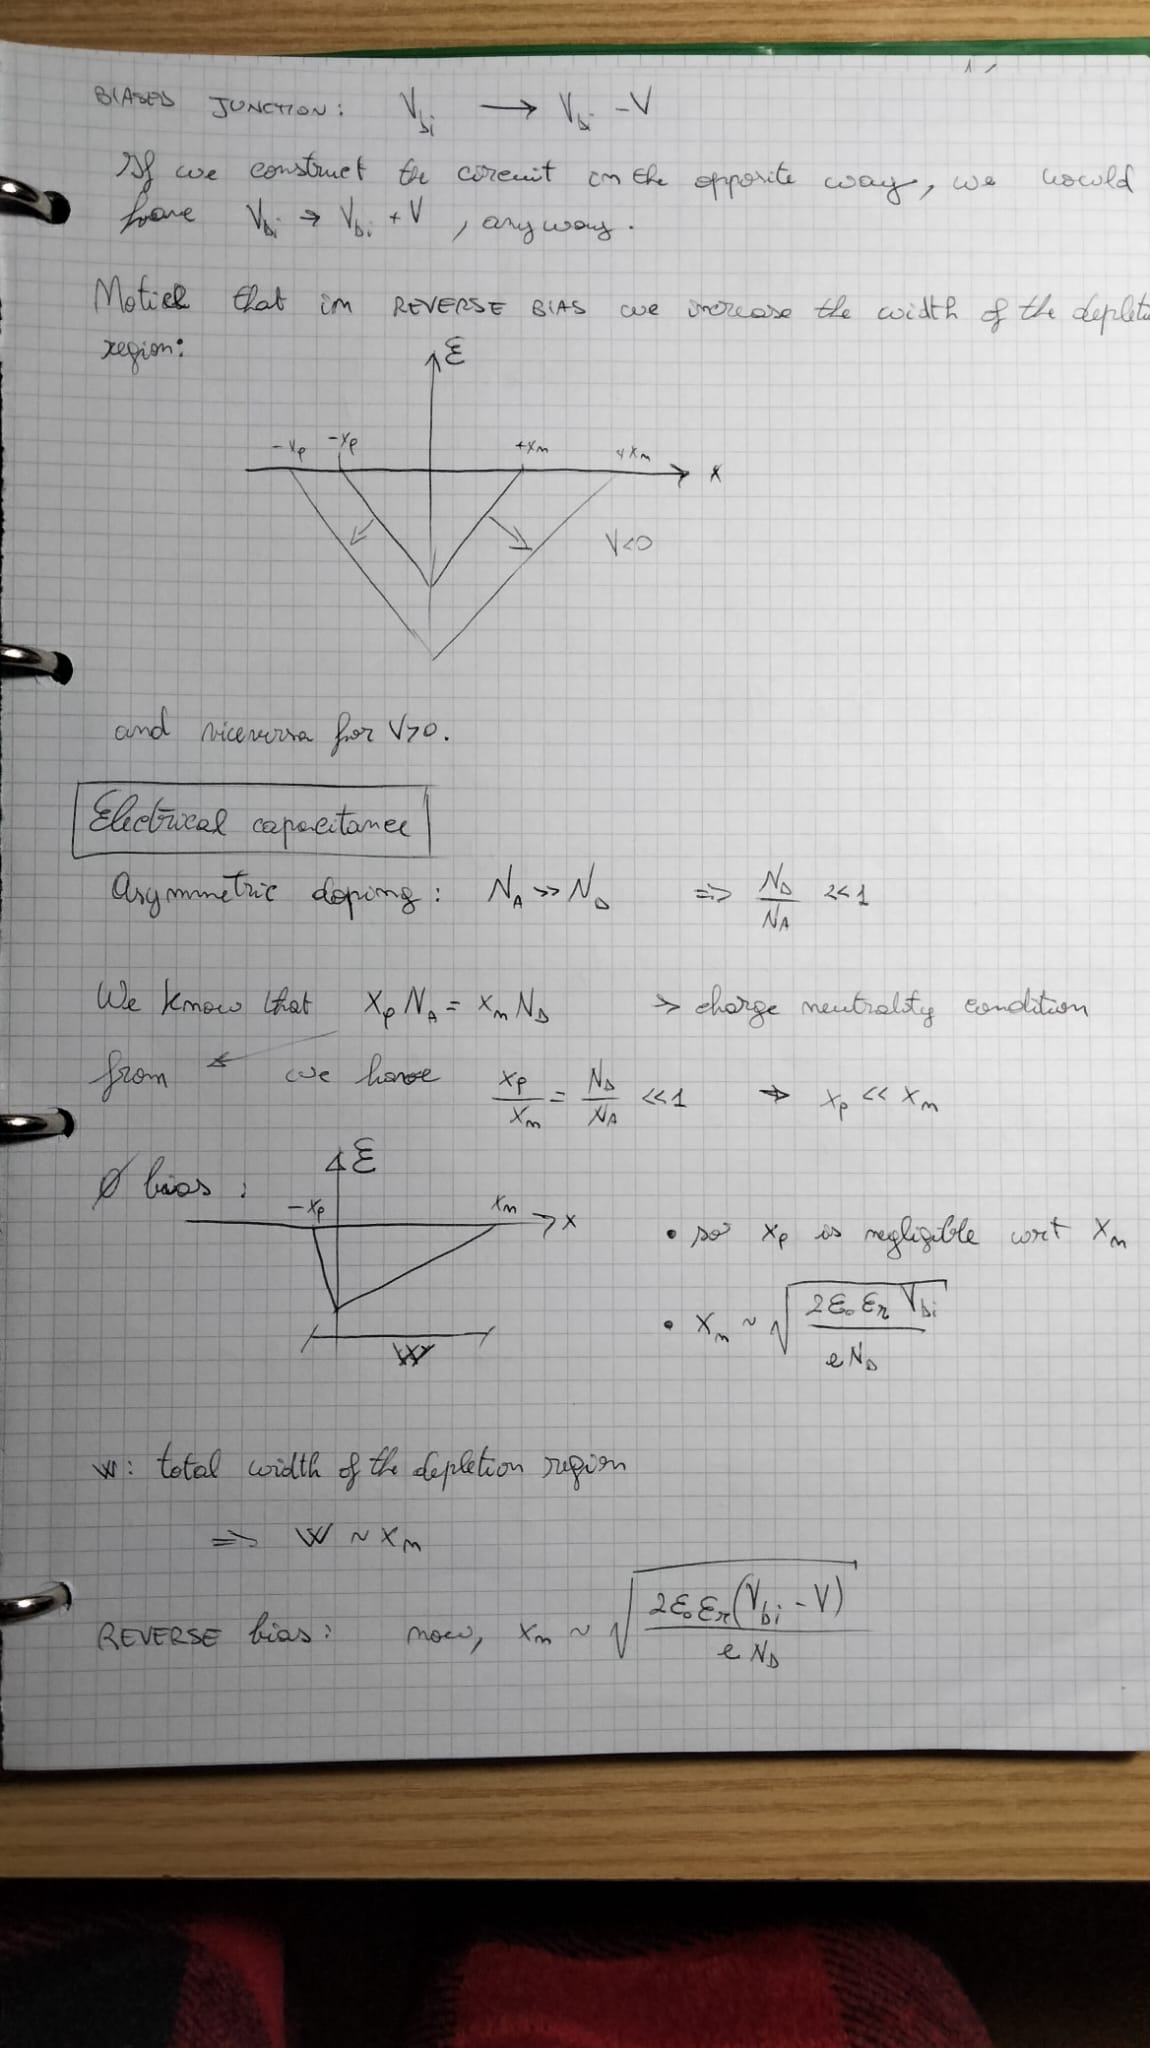 BIASED JUNCTION: V_bi → V_bi - V
If we construct the circuit in the opposite way, we would
have V_bi → V_bi + V, anyway.
Notice that in REVERSE BIAS we increase the width of the depleti
region:
ℰ
-x_p -x_p +x_n +x_n
x
V<0
and viceversa for V>0.
Electrical capacitance
Asymmetric doping: N_A >> N_D => N_D/N_A << 1
We know that x_p N_A = x_n N_D → charge neutrality condition
from ← we have x_p/x_n = N_D/N_A << 1 → x_p << x_n
Ø bias:
ℰ
-x_p x_n x
W
• so x_p is negligible wrt x_n
• x_n ~ √(2ε₀ε_r V_bi / eN_D)
W: total width of the depletion region
=> W ~ x_n
REVERSE bias: now, x_n ~ √(2ε₀ε_r(V_bi - V) / eN_D)